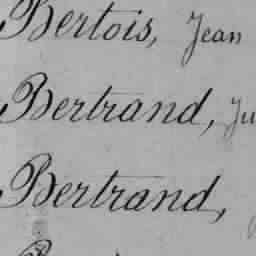 Bertois, Jean
Bertrand, Ju
Bertrand,